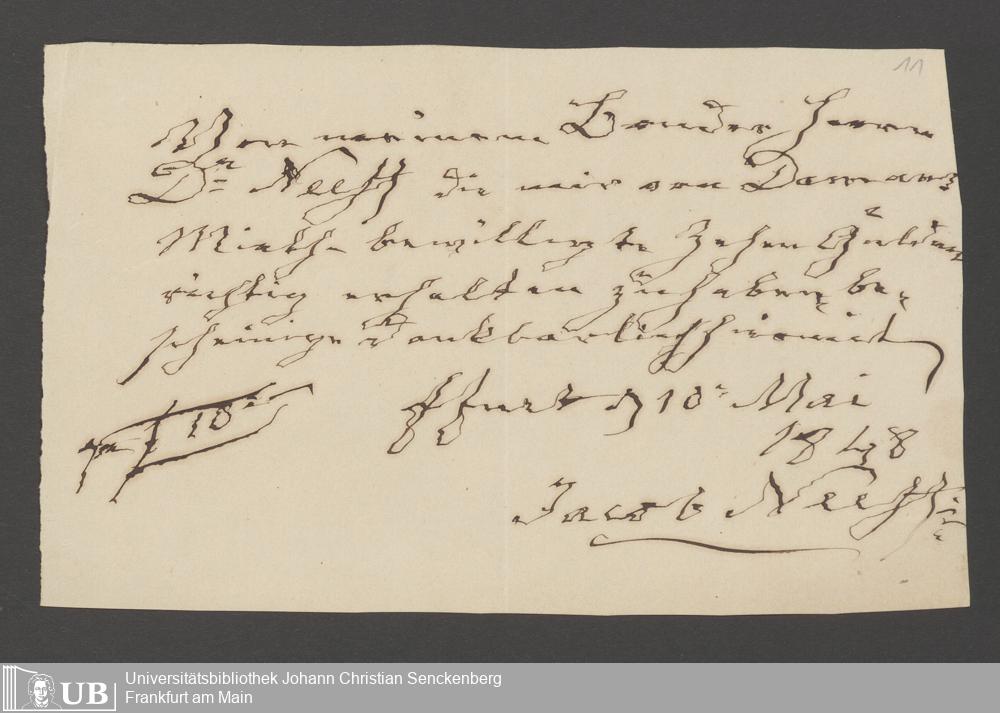 11
Von meinem Bruder Herrn
Dr. Neeff die mir von
Mieth bewilligte Zehen Gulden
richtig erhalten zu haben be-
scheinige dankbarlichst hiermit
ffurt d 10n Mai
1848
f 10
Jacob Neeff
UB
Universitätsbibliothek Johann Christian Senckenberg
Frankfurt am Main